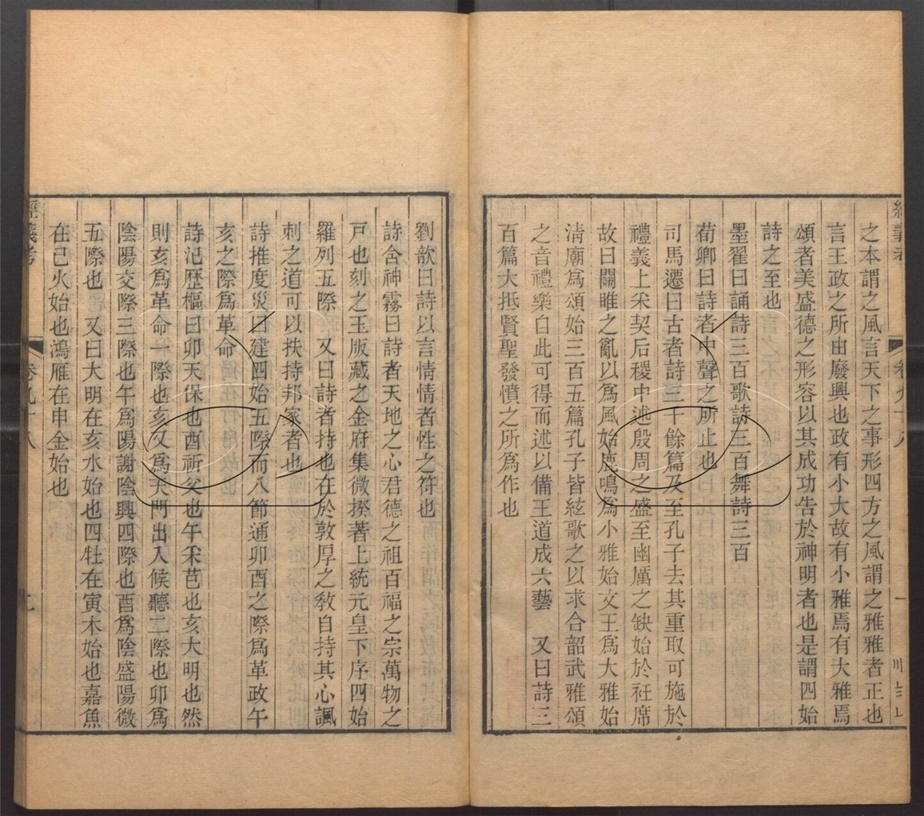 之本謂之風言天下之事形四方之風謂之雅雅者正也
言王政之所由廢興也政有小大故有小雅焉有大雅焉
頌者美盛德之形容以其成功告於神明者也是謂四始
詩之至也
墨翟曰誦詩三百歌詩三百舞詩三百
荀卿曰詩者中聲之所止也
司馬遷曰古者詩三千餘篇及至孔子去其重取可施於
禮義上采契后稷中述殷周之盛至幽厲之缺始於衽席
故曰關雎之亂以為風始鹿鳴為小雅始文王為大雅始
清廟為頌始三百五篇孔子皆絃歌之以求合韶武雅頌
之音禮樂自此可得而述以備王道成六藝　又曰詩三
百篇大抵賢聖發憤之所為作也
經義考
卷九十八
劉歆曰詩以言情情者性之符也
詩含神霧曰詩者天地之心君德之祖百福之宗萬物之
戸也刻之玉版藏之金府集微揆著上統元皇下序四始
羅列五際　又曰詩者持也在於敦厚之敎自持其心諷
刺之道可以扶持邦家者也
詩推度災曰建四始五際而八節通卯酉之際為革政午
亥之際為革命
詩氾歷樞曰卯天保也酉祈父也午采芑也亥大明也然
則亥為革命一際也亥又為天門出入候聽二際也卯為
陰陽交際三際也午為陽謝陰興四際也酉為陰盛陽微
五際也　又曰大明在亥水始也四牡在寅木始也嘉魚
在巳火始也鴻雁在申金始也
經義考
卷九十八